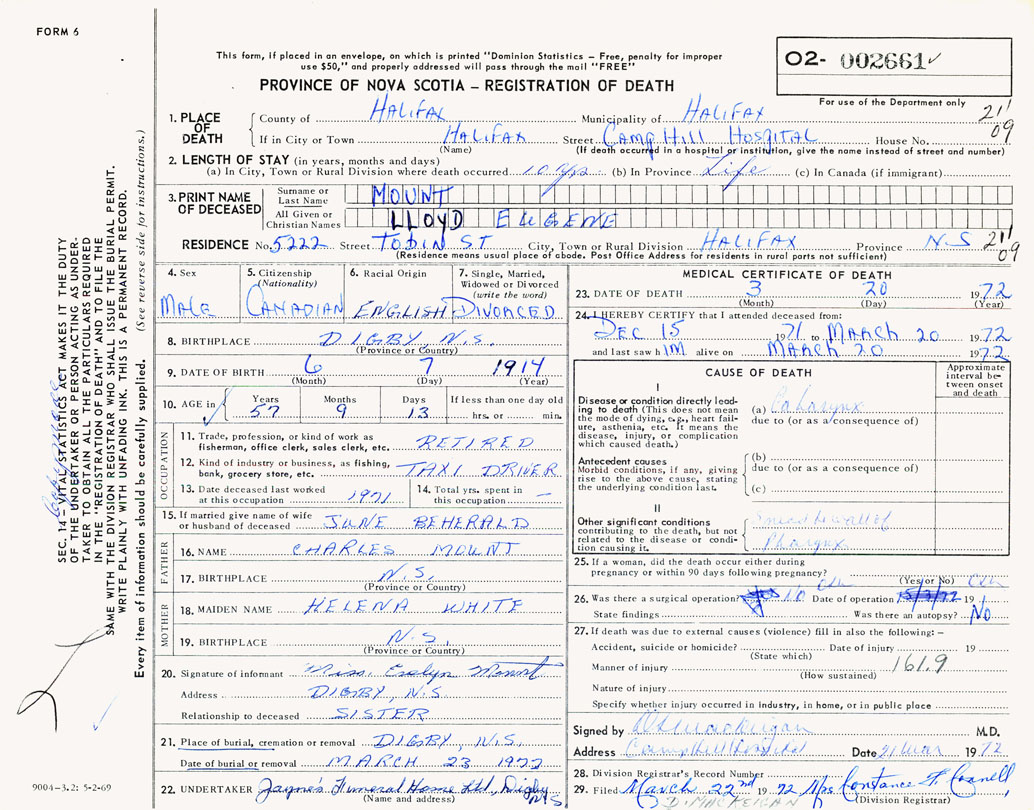 FORM 6
This form, if placed in an envelope, on which is printed "Dominion Statistics – Free, penalty for improper
use $50," and properly addressed will pass through the mail "FREE"
PROVINCE OF NOVA SCOTIA – REGISTRATION OF DEATH
O2- 002661
For use of the Department only
21 09
1. PLACE OF DEATH
County of HALIFAX Municipality of HALIFAX
If in City or Town HALIFAX Street CAMP HILL HOSPITAL House No.
(Name) (If death occurred in a hospital or institution, give the name instead of street and number)
2. LENGTH OF STAY (in years, months and days)
(a) In City, Town or Rural Division where death occurred 10 yrs (b) In Province Life (c) In Canada (if immigrant)
3. PRINT NAME OF DECEASED
Surname or Last Name MOUNT
All Given or Christian Names LLOYD EUGENE
RESIDENCE No. 5222 Street TOBIN ST City, Town or Rural Division HALIFAX Province N.S 21 09
(Residence means usual place of abode. Post Office Address for residents in rural parts not sufficient)
4. Sex MALE
5. Citizenship (Nationality) CANADIAN
6. Racial Origin ENGLISH
7. Single, Married, Widowed or Divorced (write the word) DIVORCED
8. BIRTHPLACE DIGBY, N.S.
(Province or Country)
9. DATE OF BIRTH 6 7 1914
(Month) (Day) (Year)
10. AGE in Years 57 Months 9 Days 13 If less than one day old hrs. or min.
OCCUPATION
11. Trade, profession, or kind of work as fisherman, office clerk, sales clerk, etc. RETIRED
12. Kind of industry or business, as fishing, bank, grocery store, etc. TAXI DRIVER
13. Date deceased last worked at this occupation 1971
14. Total yrs. spent in this occupation –
15. If married give name of wife or husband of deceased JUNE BEHERALD
FATHER
16. NAME CHARLES MOUNT
17. BIRTHPLACE N.S.
(Province or Country)
MOTHER
18. MAIDEN NAME HELENA WHITE
19. BIRTHPLACE N.S.
(Province or Country)
20. Signature of informant Miss. Evelyn Mount
Address DIGBY, N.S
Relationship to deceased SISTER
21. Place of burial, cremation or removal DIGBY, N.S.
Date of burial or removal MARCH 23 1972
22. UNDERTAKER Jayne's Funeral Home Ltd, Digby NS
(Name and address)
MEDICAL CERTIFICATE OF DEATH
23. DATE OF DEATH 3 20 1972
(Month) (Day) (Year)
24. I HEREBY CERTIFY that I attended deceased from:
DEC 15 1971 to MARCH 20 1972
and last saw him alive on MARCH 20 1972
CAUSE OF DEATH
Approximate interval between onset and death
I
Disease or condition directly leading to death (This does not mean the mode of dying, e.g., heart failure, asthenia, etc. It means the disease, injury, or complication which caused death.)
(a) Ca Larynx
due to (or as a consequence of)
Antecedent causes
Morbid conditions, if any, giving rise to the above cause, stating the underlying condition last.
(b)
due to (or as a consequence of)
(c)
II
Other significant conditions contributing to the death, but not related to the disease or condition causing it.
Pharynx
25. If a woman, did the death occur either during
pregnancy or within 90 days following pregnancy?
(Yes or No)
26. Was there a surgical operation? NO Date of operation 19
State findings Was there an autopsy? NO
27. If death was due to external causes (violence) fill in also the following: –
Accident, suicide or homicide? Date of injury 19
(State which)
Manner of injury 161.9
(How sustained)
Nature of injury
Specify whether injury occurred in industry, in home, or in public place
Signed by M.D.
Address Camp Hill Hospital Date 21 Mar 1972
28. Division Registrar's Record Number
29. Filed March 22nd 1972 Mrs Constance F. Connell,
D. MACKEIGAN (Division Registrar)
SEC. 14 – VITAL STATISTICS ACT MAKES IT THE DUTY
OF THE UNDERTAKER OR PERSON ACTING AS UNDER-
TAKER TO OBTAIN ALL THE PARTICULARS REQUIRED
IN THE "REGISTRATION OF DEATH" AND TO FILE THE
SAME WITH THE DIVISION REGISTRAR WHO SHALL ISSUE THE BURIAL PERMIT.
WRITE PLAINLY WITH UNFADING INK. THIS IS A PERMANENT RECORD.
Every item of information should be carefully supplied. (See reverse side for instructions.)
9004-3.2: 5-2-69